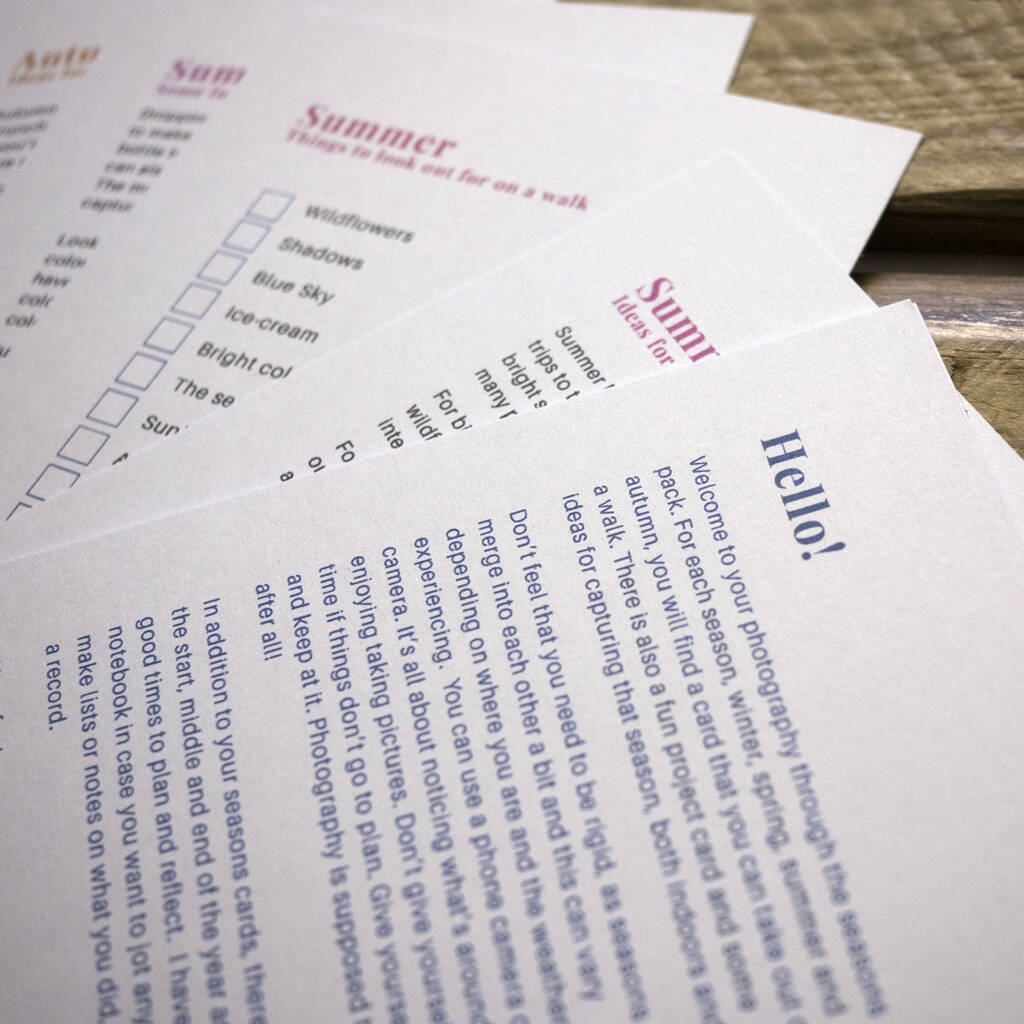 Hello!
Welcome to your photography through the seasons
pack. For each season, winter, spring, summer and
autumn, you will find a card that you can take out
a walk. There is also a fun project card and some
ideas for capturing that season, both indoors and
Don't feel that you need to be rigid, as seasons
merge into each other a bit and this can vary
depending on where you are and the weather
experiencing. You can use a phone camera
camera. It's all about noticing what's around
enjoying taking pictures. Don't give yourself
time if things don't go to plan. Give yourse
and keep at it. Photography is supposed
after all!
In addition to your seasons cards, there
the start, middle and end of the year a
good times to plan and reflect. I have
notebook in case you want to jot any
make lists or notes on what you did,
a record.
Summer
Things to look out for on a walk
Wildflowers
Shadows
Blue Sky
Ice-cream
Bright col
The se
Sun
Summ
Ideas for
Summer
trips to t
bright s
many
For b
wildf
inte
Fo
Sum
Some
to make
bottle
can als
The m
captur
Look
color
have
colo
Autu
Ideas for